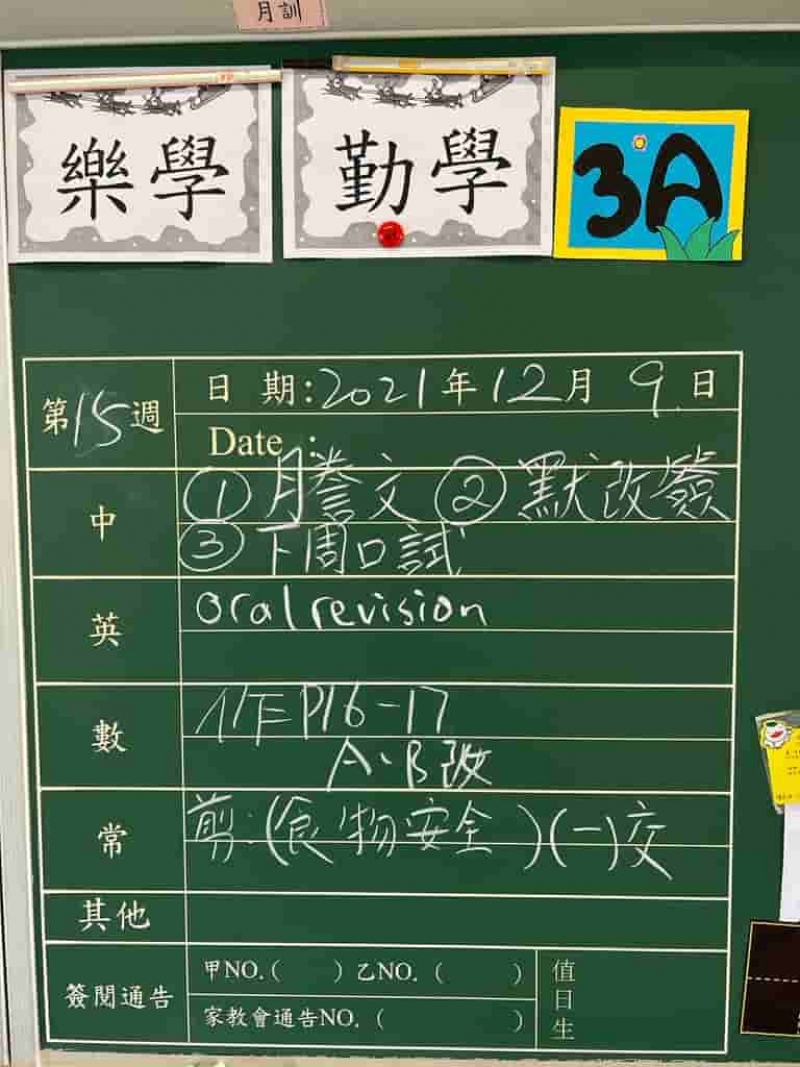 月訓
樂學
勤學
3A
第15週
日 期:2021年12月9日
Date :
中
①月謄文 ②默改簽
③下周口試
英
oral revision
數
作P16-17
A、B改
常
剪:(食物安全)(一)交
其他
簽閱通告
甲NO.( ) 乙NO. ( )
家教會通告NO. ( )
值日生